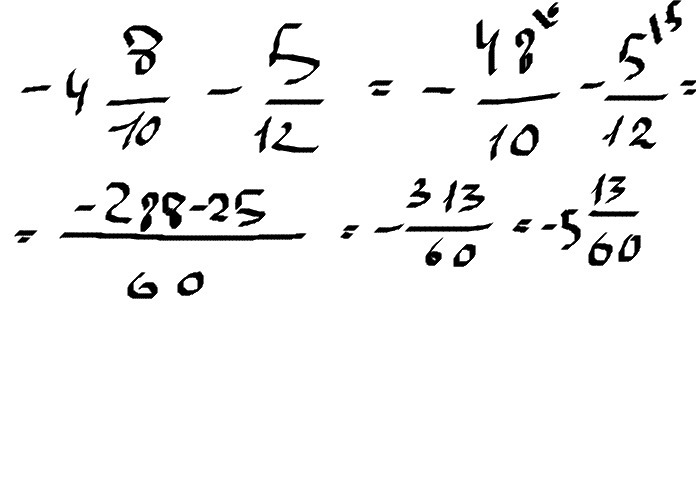 -4 8/10 - 5/12 = - 48^{16}/10 - 5^{15}/12 =
= -288-25/60 = - 313/60 = -5 13/60